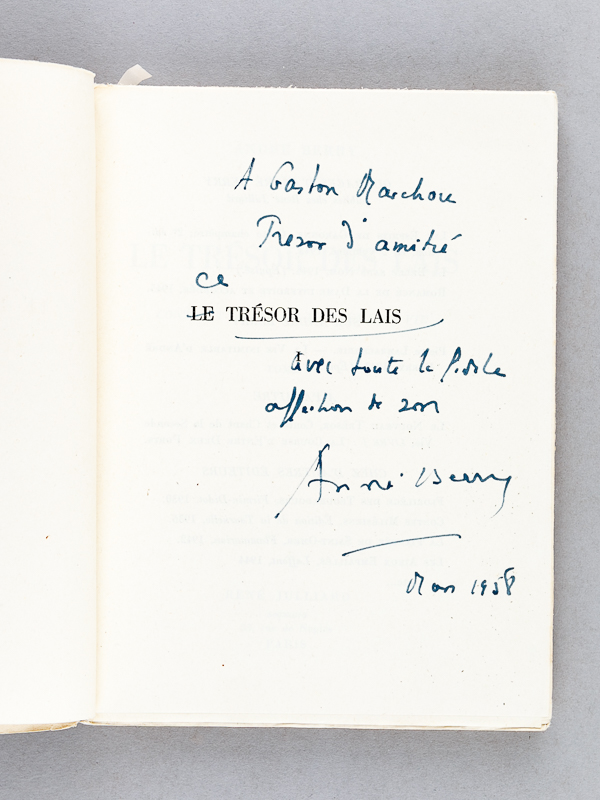 A Gaston Marchou
Tresor d'amitié
ce
LE TRÉSOR DES LAIS
avec toute la fidèle
affection de son
André Berry
Mars 1958